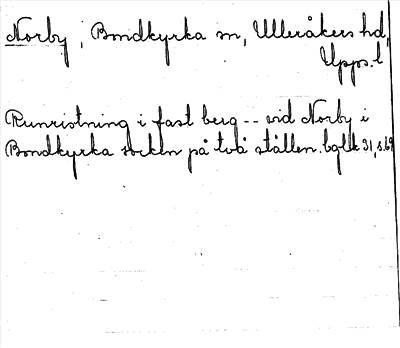 Norby, Bondkyrka sn, Ulleråkers hd,
Upps. l
Runristning i fast berg -- vid Norby i
Bondkyrka socken på två ställen.